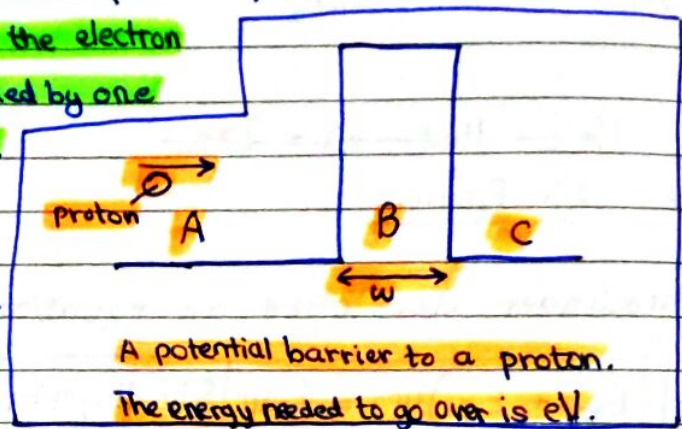 the electron
ed by one
proton
A
B
C
w
A potential barrier to a proton.
The energy needed to go over is eV.